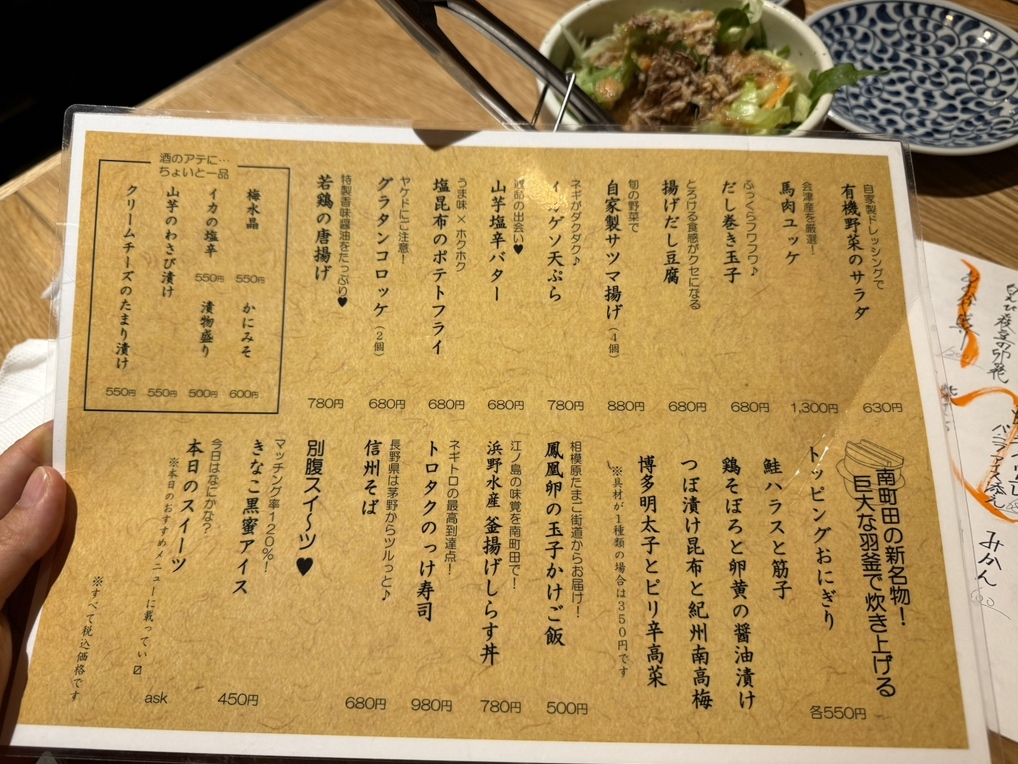 自家製ドレッシングで
有機野菜のサラダ
630円
会津産を厳選！
馬肉ユッケ
1,300円
ふっくらフワフワ♪
だし巻き玉子
680円
とろける食感がクセになる
揚げだし豆腐
680円
旬の野菜で
自家製サツマ揚げ（4個）
880円
ネギがダクダク♪
イカゲソ天ぷら
780円
の出会い♥
山芋塩辛バター
680円
うま味×ホクホク
塩昆布のポテトフライ
680円
ヤケドにご注意！
グラタンコロッケ（2個）
680円
特製香味醤油をたっぷり♥
若鶏の唐揚げ
780円
酒のアテに…
ちょいと一品
梅水晶
550円
かにみそ
600円
イカの塩辛
550円
漬物盛り
500円
山芋のわさび漬け
550円
クリームチーズのたまり漬け
550円
南町田の新名物！
巨大な羽釜で炊き上げる
トッピングおにぎり
各550円
鮭ハラスと筋子
鶏そぼろと卵黄の醤油漬け
つぼ漬け昆布と紀州南高梅
博多明太子とピリ辛高菜
※具材が1種類の場合は350円です
相模原たまご街道からお届け！
鳳凰卵の玉子かけご飯
500円
江ノ島の味覚を南町田で！
浜野水産 釜揚げしらす丼
780円
ネギトロの最高到達点！
トロタクのっけ寿司
980円
長野県は茅野からツルっと♪
信州そば
680円
別腹スイ〜ツ♥
マッチング率120%！
きなこ黒蜜アイス
450円
今日はなにかな？
本日のスイーツ
※本日のおすすめメニューに載ってい〼
ask
※すべて税込価格です
みかん